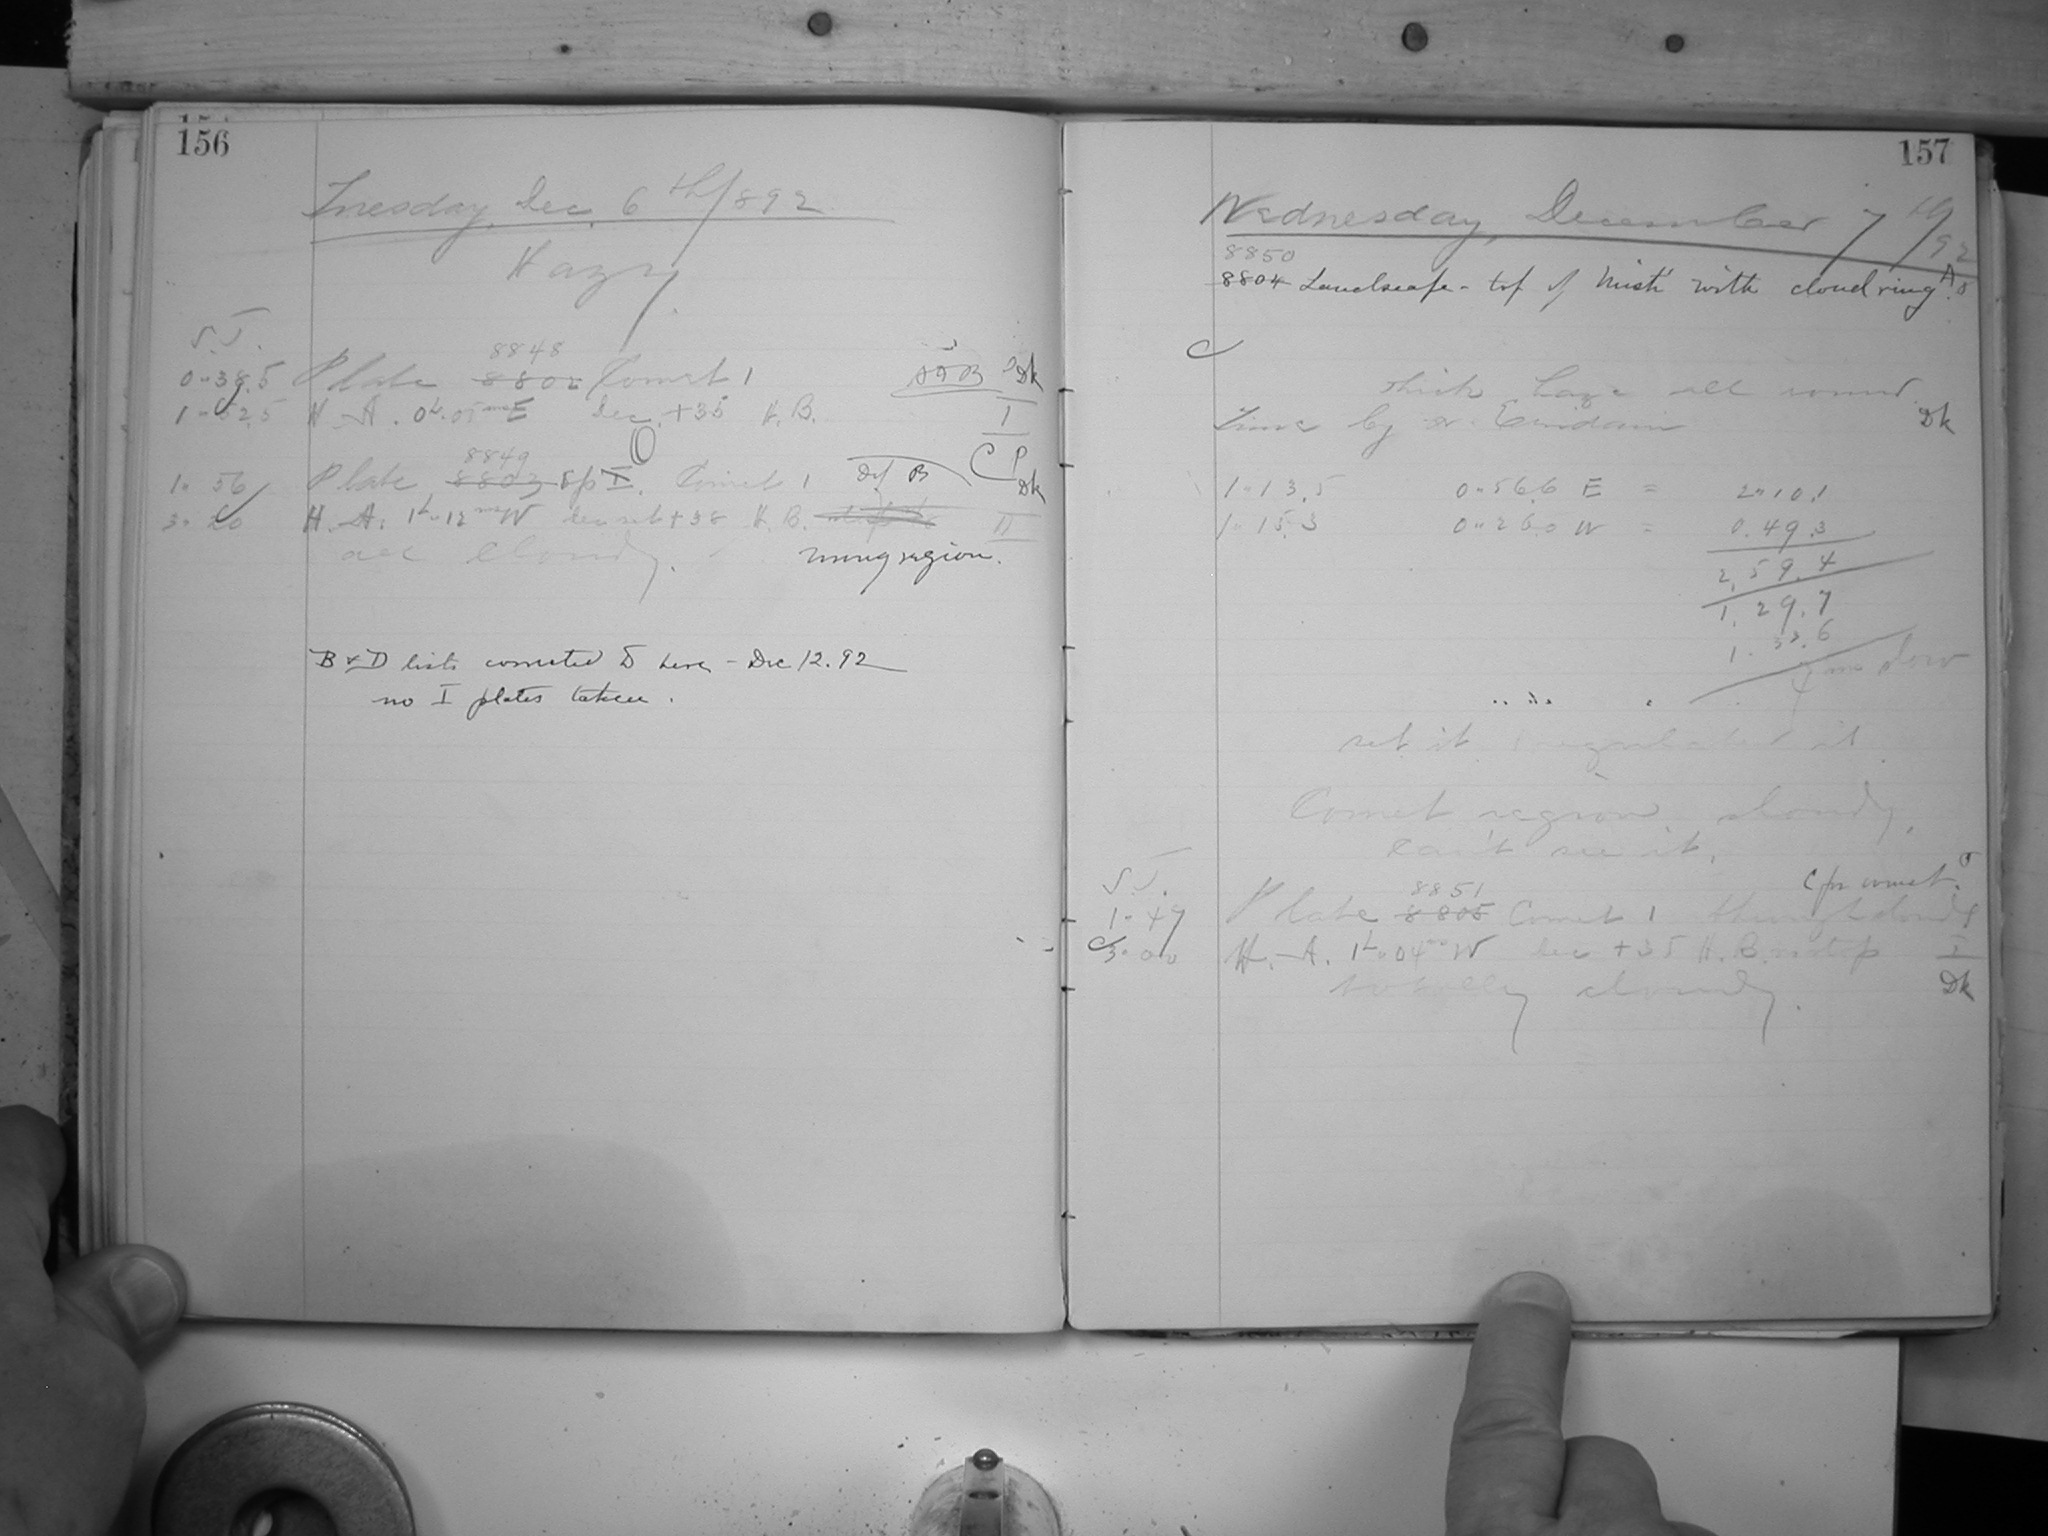 156
Tuesday, Dec. 6th 1892
Hazy
S.T.
8848
0-38.5 Plate 8802 Comet 1 Dk
1-52.5 H.A. 0h.05m E Dec. +35 H.B. I
8849
1-56 Plate 8803 Sp I. Comet 1 B Dk
3-20 H.A. 1h-12m W dec set +38 H.B. II
all cloudy. wrong region.
B & D lists corrected to here - Dec 12.92
no I plates taken.
157
Wednesday, December 7th/92
8850
8804 Landscape - top of Mist with cloud ring.
C
thick haze all round.
Time by Eridani Dk
1-13.5 0-56.6 E = 2-10.1
1-15.3 0-26.0 W = 0.49.3
2,59.4
1.29.7
1.33.6
4m slow
set it regulated it
Comet region cloudy,
can't see it.
S.T. C for comet.
8851
1-47 Plate 8805 Comet 1
3-00 H.A. 1h-04m W dec +35 H.B. I
totally cloudy. Dk